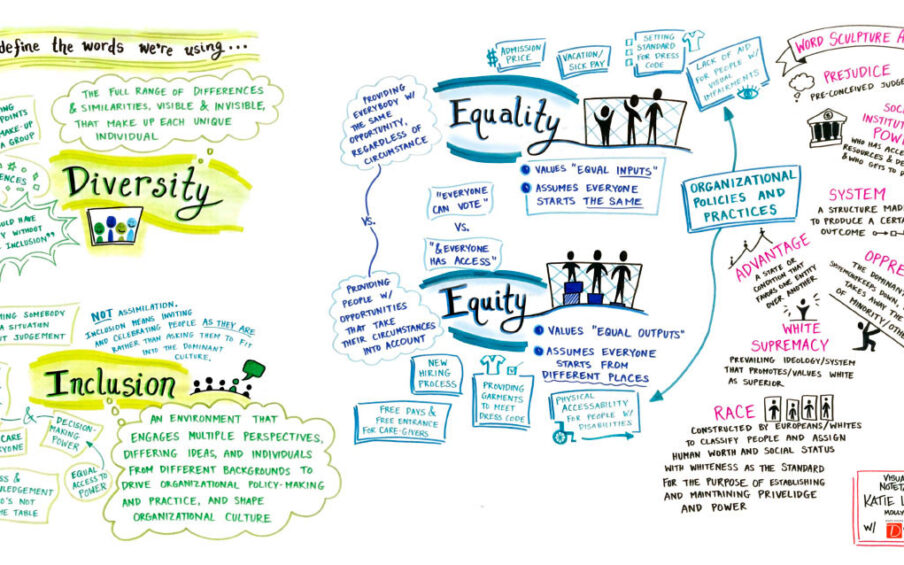 define the words we're using...
THE FULL RANGE OF DIFFERENCES
& SIMILARITIES, VISIBLE & INVISIBLE,
THAT MAKE UP EACH UNIQUE
INDIVIDUAL
POINTS
MAKE-UP
A GROUP
Diversity
HAVE
WITHOUT
INCLUSION"
SOMEBODY
A SITUATION
JUDGEMENT
NOT ASSIMILATION.
INCLUSION MEANS INVITING
AND CELEBRATING PEOPLE AS THEY ARE
RATHER THAN ASKING THEM TO FIT
INTO THE DOMINANT
CULTURE.
Inclusion
&
DECISION-
MAKING
POWER
CARE
EQUAL
ACCESS TO
POWER
&
NOT
TABLE
AN ENVIRONMENT THAT
ENGAGES MULTIPLE PERSPECTIVES,
DIFFERING IDEAS, AND INDIVIDUALS
FROM DIFFERENT BACKGROUNDS TO
DRIVE ORGANIZATIONAL POLICY-MAKING
AND PRACTICE, AND SHAPE
ORGANIZATIONAL CULTURE
$ ADMISSION
PRICE
VACATION/
SICK PAY
SETTING
STANDARD
FOR DRESS
CODE
LACK OF AID
FOR PEOPLE W/
VISUAL
IMPAIRMENTS
PROVIDING
EVERYBODY W/
THE SAME
OPPORTUNITY,
REGARDLESS OF
CIRCUMSTANCE
Equality
VALUES "EQUAL INPUTS"
ASSUMES EVERYONE
STARTS THE SAME
VS.
"EVERYONE
CAN VOTE"
VS.
"& EVERYONE
HAS ACCESS"
ORGANIZATIONAL
POLICIES AND
PRACTICES
PROVIDING
PEOPLE W/
OPPORTUNITIES
THAT TAKE
THEIR CIRCUMSTANCES
INTO ACCOUNT
Equity
VALUES "EQUAL OUTPUTS"
ASSUMES EVERYONE
STARTS FROM
DIFFERENT PLACES
NEW
HIRING
PROCESS
FREE DAYS &
FREE ENTRANCE
FOR CARE-GIVERS
PROVIDING
GARMENTS
TO MEET
DRESS CODE
PHYSICAL
ACCESSABILITY
FOR PEOPLE W/
DISABILITIES
WORD SCULPTURE
PREJUDICE
PRE-CONCEIVED
WHO HAS
RESOURCES &
& WHO GETS TO
SYSTEM
A STRUCTURE
TO PRODUCE A
OUTCOME
ADVANTAGE
A STATE OR
CONDITION THAT
FAVORS ONE ENTITY
OVER ANOTHER
THE
KEEPS DOWN,
TAKES AWAY THE
OF
WHITE
SUPREMACY
PREVAILING IDEOLOGY/SYSTEM
THAT PROMOTES/VALUES WHITE
AS SUPERIOR
RACE
CONSTRUCTED BY EUROPEANS/WHITES
TO CLASSIFY PEOPLE AND ASSIGN
HUMAN WORTH AND SOCIAL STATUS
WITH WHITENESS AS THE STANDARD
FOR THE PURPOSE OF ESTABLISHING
AND MAINTAINING PRIVELIDGE
AND POWER
KATIE
W/